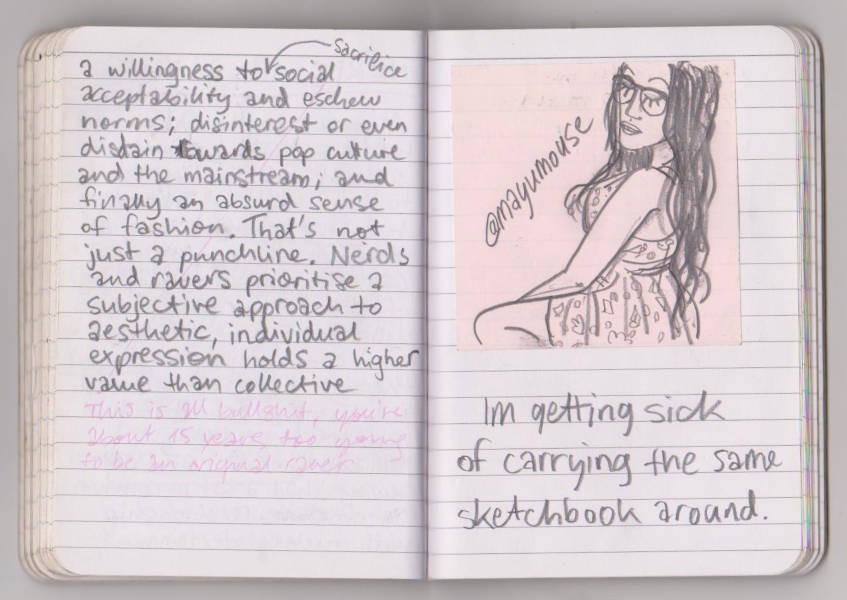 sacrifice
a willingness to social
acceptability and eschew
norms; disinterest or even
disdain towards pop culture
and the mainstream; and
finally an absurd sense
of fashion. That's not
just a punchline. Nerds
and ravers prioritise a
subjective approach to
aesthetic, individual
expression holds a higher
value than collective
This is all bullshit, you're
about 15 years too young
to be an original raver
@mayumouse
Im getting sick
of carrying the same
sketchbook around.